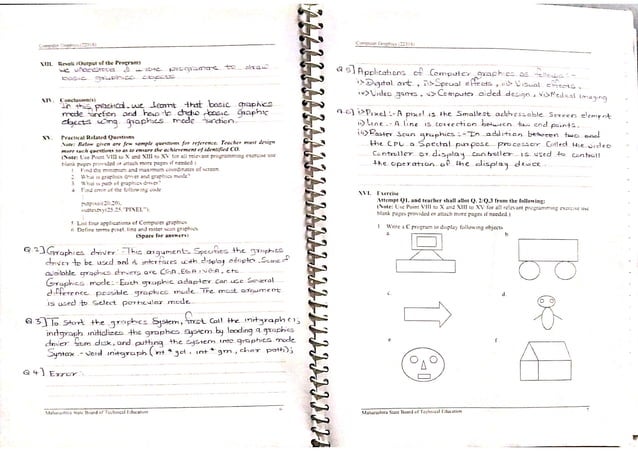 Computer Graphics (22318)
XIII. Result (Output of the Program)
we understood & write programme to draw
basic graphics objects
XIV. Conclusion(s)
In this practical we learnt that basic graphics
mode function and how to draw basic graphic
objects using graphics mode function.
XV. Practical Related Questions
Note: Below given are few sample questions for reference. Teacher must design
more such questions so as to ensure the achievement of identified CO.
(Note: Use Point VIII to X and XIII to XV for all relevant programming exercise use
blank pages provided or attach more pages if needed.)
1. Find the minimum and maximum coordinates of screen
2. What is graphics driver and graphics mode?
3. What is path of graphics driver?
4. Find error of the following code
putpixel(20,20);
outtextxy(25,25,"PIXEL");
5. List four applications of Computer graphics
6. Define terms pixel, line and raster scan graphics
(Space for answers)
Q.2] Graphics driver :- This argument specifies the graphics
driver to be used and it interfaces with display adapter. Some of
available graphics drivers are CGA, EGA, VGA, etc
Graphics mode:- Each graphic adapter can use several
difference possible graphics mode. The most argument
is used to select particular mode.
Q 3] To start the graphics system, first call the initgraph();
initgraph initializes the graphics system by loading a graphics
driver from disk, and putting the system into graphics mode
Syntax :- void initgraph(int *gd, int *gm, char path);
Q 4] Error :
Maharashtra State Board of Technical Education 6
Computer Graphics (22318)
Q.5] Applications of Computer graphics as follows:-
i> Digital art, ii> Special effects, iii> Visual effects,
iv> Video games, v> Computer aided design, vi> Medical Imaging
Q.6] i> Pixel :- A pixel is the Smallest addressable Screen element
ii> Line :- A line is connection between two end points.
iii> Raster Scan graphics :- In addition between two and
the CPU a Special purpose processor Called the video
Controller or display controller is used to controll
the operation of the display device.
XVI. Exercise
Attempt Q1. and teacher shall allot Q. 2/Q.3 from the following:
(Note: Use Point VIII to X and XIII to XV for all relevant programming exercise use
blank pages provided or attach more pages if needed.)
1. Write a C program to display following objects
a. b.
c. d.
e. f.
Maharashtra State Board of Technical Education 7